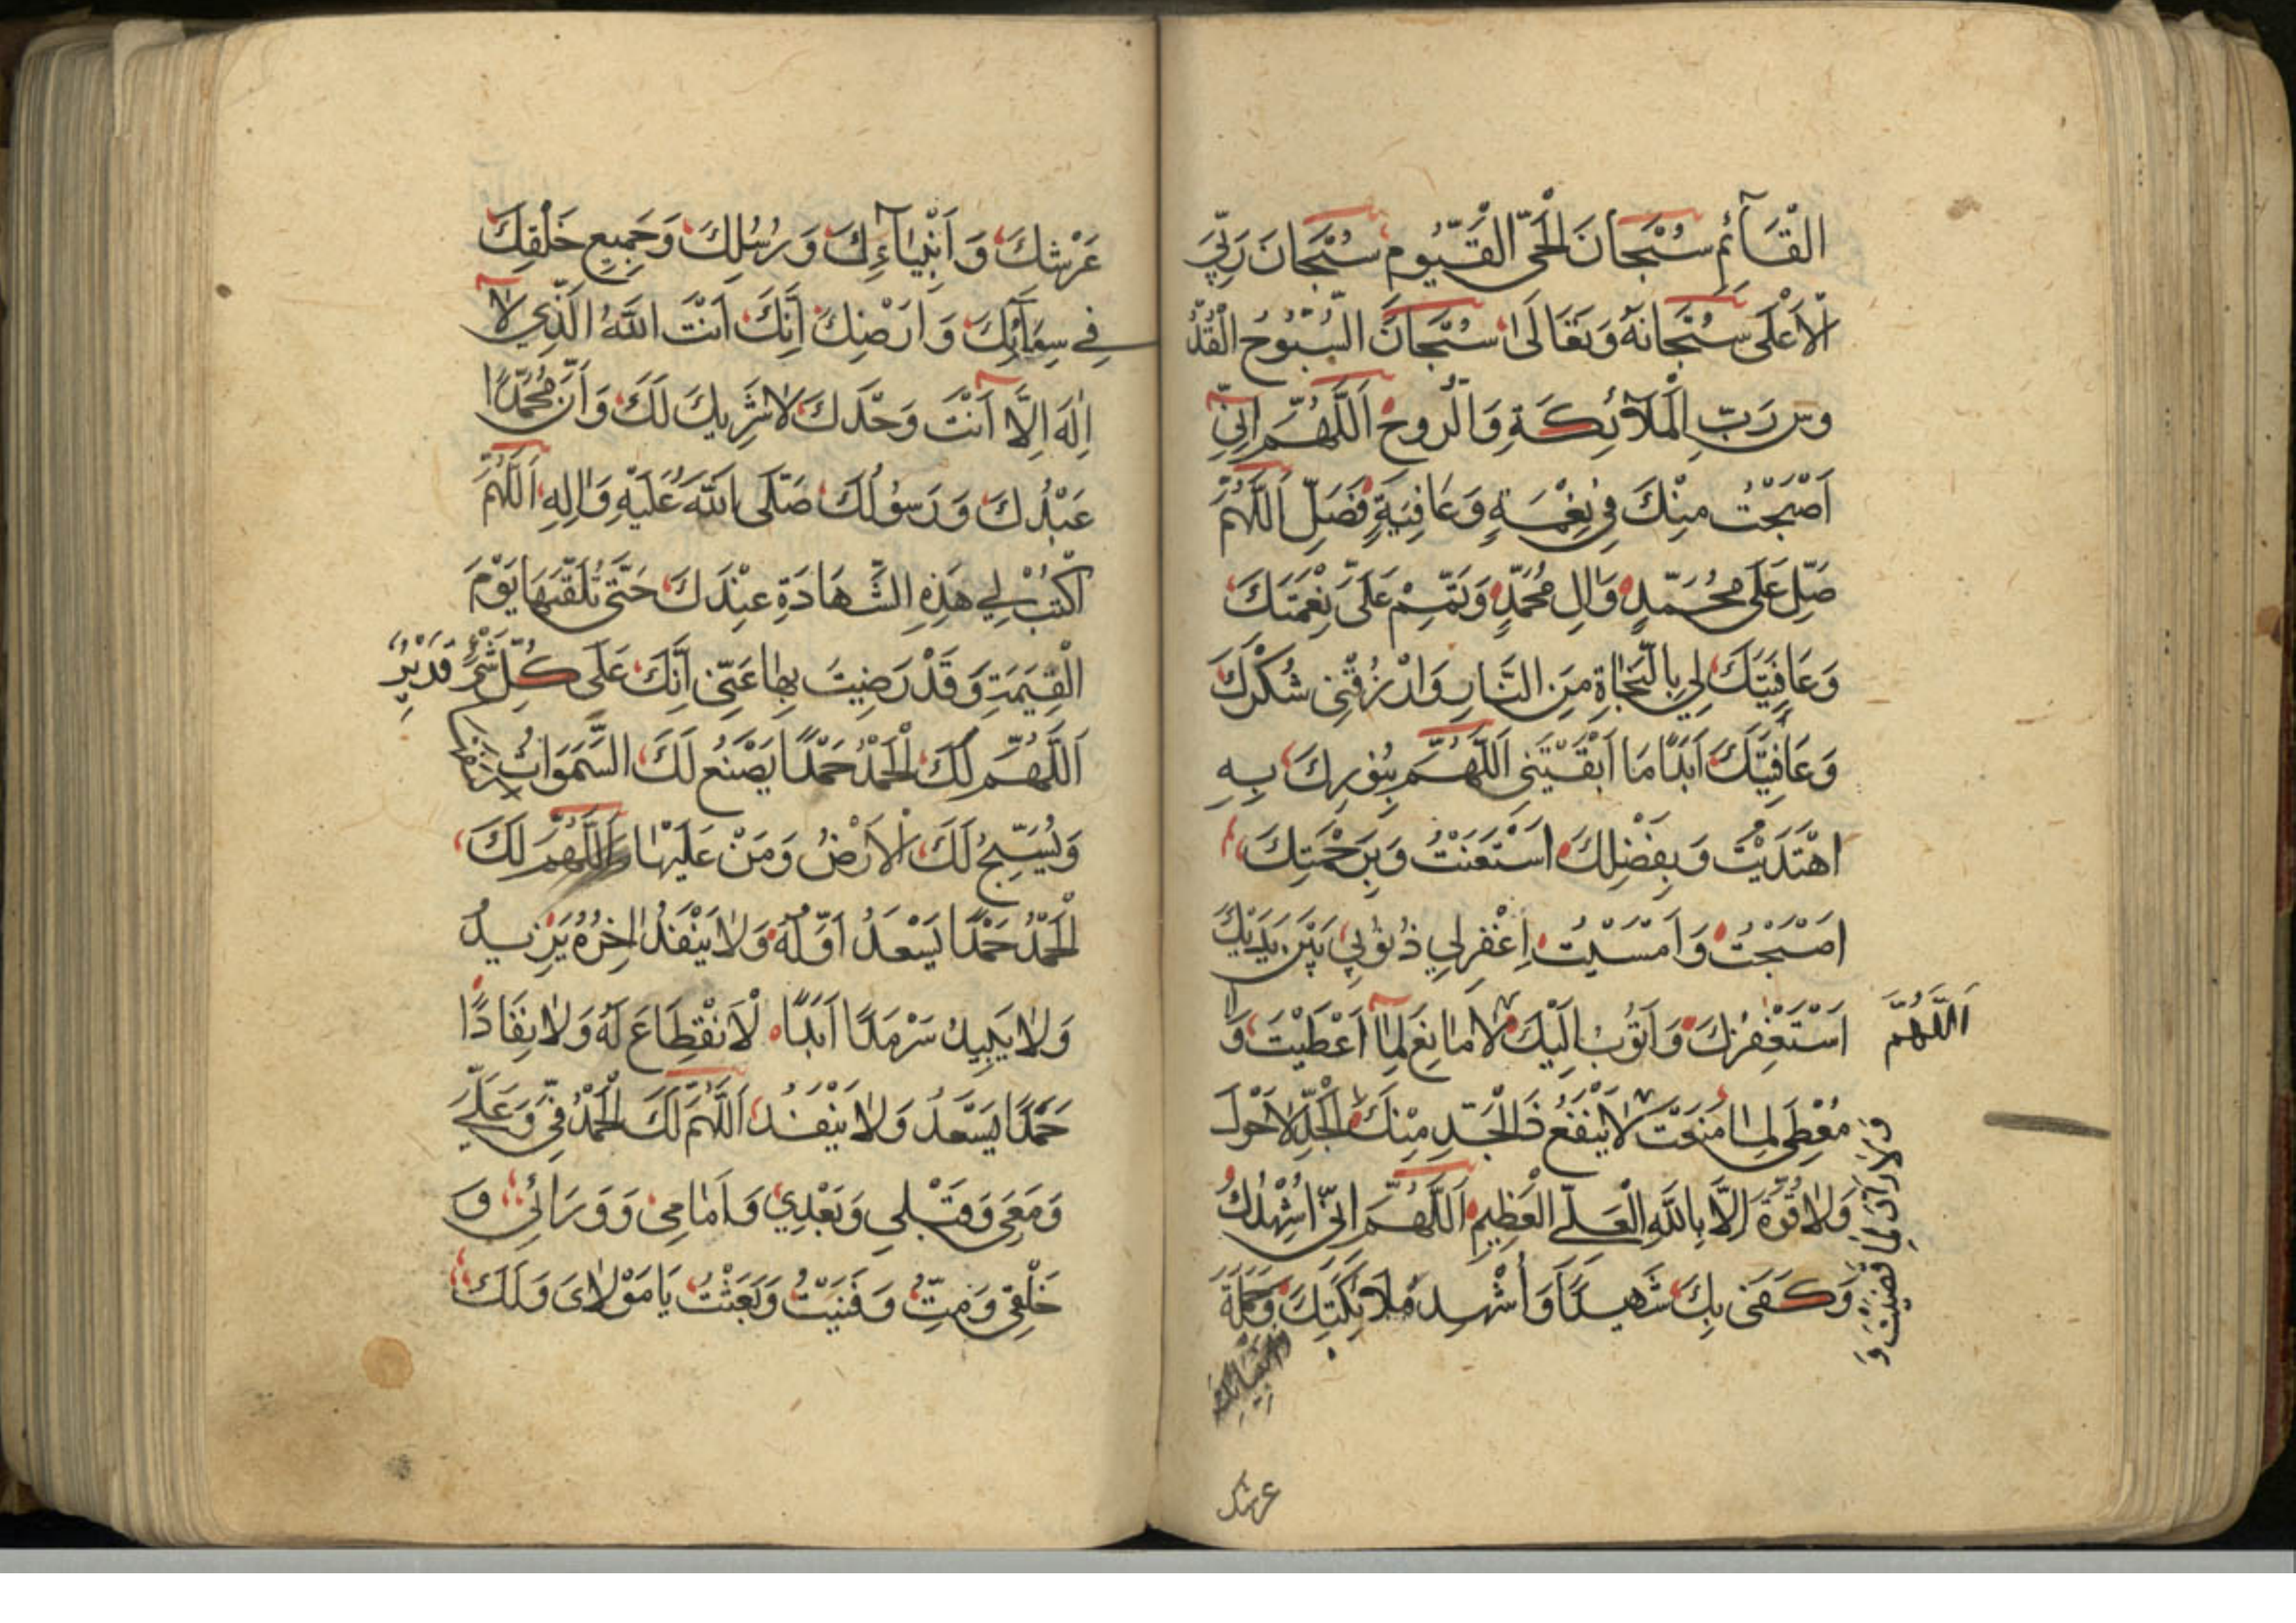 الْقَآئِمِ سُبْحَانَ الْحَيِّ الْقَيُّومِ سُبْحَانَ رَبِّيَ
الْاَعْلَى سُبْحَانَهُ وَتَعَالَىٰ سُبْحَانَ السُّبُّوحُ الْقُدُّ
وس رَبِّ الْمَلَآئِكَةِ وَالرُّوحِ اَللّٰهُمَّ اِنِّي
اَصْبَحْتُ مِنْكَ فِي نِعْمَةٍ وَعَافِيَةٍ فَصَلِّ اَللّٰهُمَّ
صَلِّ عَلَى مُحَمَّدٍ وَاٰلِ مُحَمَّدٍ وَتَمِّمْ عَلَيَّ نِعْمَتَكَ
وَعَافِيَتَكَ لِي بِالنَّجَاةِ مِنَ النَّارِ وَارْزُقْنِي شُكْرَكَ
وَعَافِيَتَكَ اَبَدًا مَا اَبْقَيْتَنِي اَللّٰهُمَّ بِنُورِكَ بِهِ
اهْتَدَيْتُ وَبِفَضْلِكَ اسْتَغْنَيْتُ وَبِرَحْمَتِكَ
اَصْبَحْتُ وَاَمْسَيْتُ اِغْفِرْلِي ذُنُوبِي بَيْنَ يَدَيْكَ
اَسْتَغْفِرُكَ وَاَتُوبُ اِلَيْكَ لَا مَانِعَ لِمَا اَعْطَيْتَ وَلَا
اَللّٰهُمَّ
مُعْطِيَ لِمَا مَنَعْتَ لَا يَنْفَعُ ذَا الْجَدِّ مِنْكَ الْجَدُّ لَا حَوْلَ
وَلَا قُوَّةَ اِلَّا بِاللّٰهِ الْعَلِيِّ الْعَظِيمِ اَللّٰهُمَّ اِنِّي اُشْهِدُكَ
وَكَفَى بِكَ شَهِيدًا وَاُشْهِدُ مَلَائِكَتِكَ وَحَمَلَةَ
وَلَا رَادَّ لِمَا قَضَيْتَ وَ
عرشك
عَرْشِكَ وَ اَنْبِيَآءِكَ وَ رُسُلِكَ وَجَمِيعِ خَلْقِكَ
فِي سِمَآئِكَ وَ اَرْضِكَ اَنَّكَ اَنْتَ اللّٰهُ الَّذِي لَا
اِلٰهَ اِلَّا اَنْتَ وَحْدَكَ لَا شَرِيكَ لَكَ وَاَنَّ مُحَمَّدًا
عَبْدُكَ وَ رَسُولُكَ صَلَّى اللّٰهُ عَلَيْهِ وَاٰلِهِ اَللّٰهُمَّ
اكْتُبْ لِي هَذِهِ الشَّهَادَةِ عِنْدَكَ حَتَّى تُلَقِّنَهَا يَوْمَ
الْقِيٰمَةِ وَقَدْ رَضِيتَ بِهَا عَنِّي اِنَّكَ عَلَى كُلِّ شَيْءٍ قَدِيرٌ
اَللّٰهُمَّ لَكَ الْحَمْدُ حَمْدًا يَصْنَعُ لَكَ السَّمَوَاتُ
وَيُسَبِّحُ لَكَ الْاَرْضُ وَمَنْ عَلَيْهَا اَللّٰهُمَّ لَكَ
الْحَمْدُ حَمْدًا يَسْعَدُ اَوَّلُهُ وَلَا يَنْفَدُ اٰخِرُهُ يَزِيدُ
وَلَا يَبِيدُ سَرْمَدًا اَبَدًا لَا نْقِطَاعَ لَهُ وَلَا نِفَادًا
حَمْدًا يَسْعَدُ وَلَا يَنْفَدُ اَللّٰهُمَّ لَكَ الْحَمْدُ فِيَّ وَعَلَيَّ
وَمَعِي وَقَبْلِي وَبَعْدِي وَاَمَامِي وَ وَرَائِي وَ
خَلْفِي وَمِتُّ وَفَنِيتُ وَبَعَثْتُ يَا مَوْلَايَ وَلَكَ